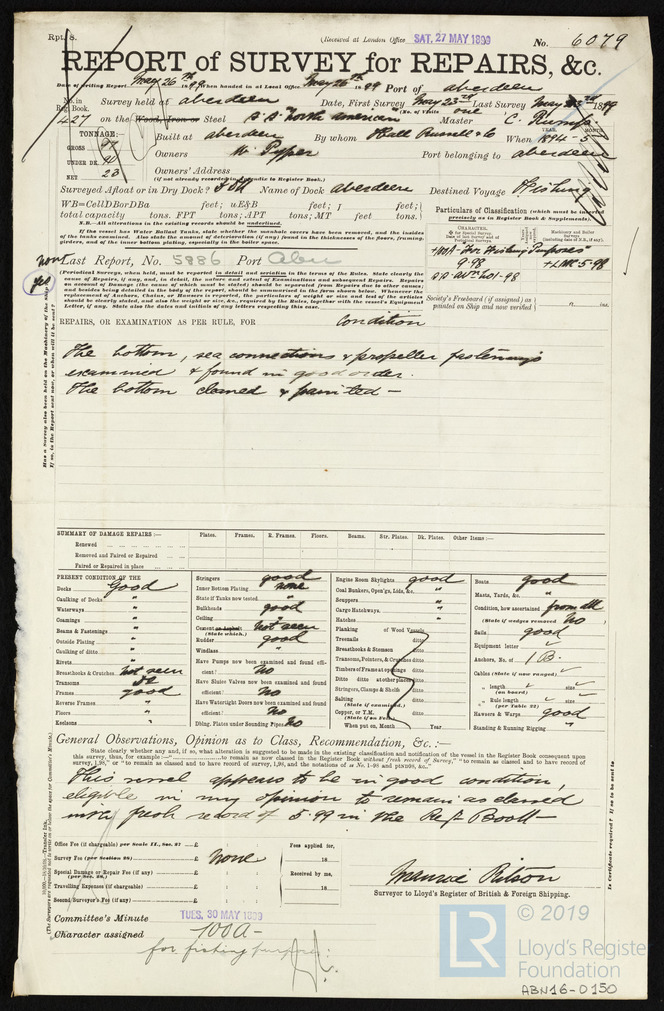 Rpt. 8.
(Received at London Office SAT. 27 MAY 1899
No. 6079
REPORT of SURVEY for REPAIRS, &c.
Date of writing Report May 26th 1899 When handed in at Local Office May 26th 1899 Port of Aberdeen
No. in Reg. Book.
427
Survey held at Aberdeen Date, First Survey May 23rd Last Survey May 23rd 1899
(No. of Visits one
on the Wood, Iron or Steel S.S. "North American" Master C.
TONNAGE:—
GROSS 97
UNDER DK. 91
NET 23
Built at Aberdeen By whom Hall Russell & Co When 1894-5
YEAR. MONTH.
Owners W Pyper Port belonging to Aberdeen
Owners' Address
(if not already recorded in Appendix to Register Book.)
Surveyed Afloat or in Dry Dock? Name of Dock Aberdeen Destined Voyage Fishing
WB=CellDBorDBa feet; uE&B feet; f feet;
total capacity tons. FPT tons; APT tons; MT feet tons.
N.B.—All alterations in the existing records should be underlined.
If the vessel has Water Ballast Tanks, state whether the manhole covers have been removed, and the insides
of the tanks examined. Also state the amount of deterioration (if any) found in the thicknesses of the floors, framing,
girders, and of the inner bottom plating, especially in the boiler space.
Particulars of Classification (which must be inserted
precisely as in Register Book & Supplements).
+100A - For Fishing Purposes
9.98
+LMC 5-98
Last Report, No. 5886 Port Abn
yes
(Periodical Surveys, when held, must be reported in detail and seriatim in the terms of the Rules. State clearly the
cause of Repairs, if any, and, in detail, the nature and extent of Examinations and subsequent Repairs. Repairs
on account of Damage (the cause of which must be stated) should be separated from Repairs due to other causes,
and besides being detailed in the body of the report, should be summarised in the form shown below. Whenever the
replacement of Anchors, Chain, or Hawsers is reported, the particulars of weight or size and test of the articles
should be clearly stated, and also the weight or size, &c., required by the Rules, together with the vessel's Equipment
Letter, if any. State also the dates and initials of any letters respecting this case.
Society's Freeboard (if assigned) as
painted on Ship and now verified ft. ins.
REPAIRS, OR EXAMINATION AS PER RULE, FOR Condition
The bottom, sea connections & propeller fastenings
examined & found in good order.
The bottom cleaned & painted —
SUMMARY OF DAMAGE REPAIRS:— Plates. Frames. R. Frames. Floors. Beams. Str. Plates. Dk. Plates. Other Items:—
Renewed
Removed and Faired or Repaired
Faired or Repaired in place
PRESENT CONDITION OF THE
Decks Good
Caulking of Decks "
Waterways "
Coamings "
Beams & Fastenings "
Outside Plating "
Caulking of ditto "
Rivets "
Breasthooks & Crutches not seen
Transoms
Frames good
Reverse Frames "
Floors "
Keelsons "
Stringers good
Inner Bottom Plating none
State if Tanks now tested "
Bulkheads good
Ceiling "
Cement or Asphalt not seen
(State which.)
Rudder good
Windlass "
Have Pumps now been examined and found efficient? No
Have Sluice Valves now been examined and found efficient? No
Have Watertight Doors now been examined and found efficient? No
Dblng. Plates under Sounding Pipes No
Engine Room Skylights good
Coal Bunkers, Open'gs, Lids, &c. "
Scuppers "
Cargo Hatchways. "
Hatches "
Planking of Wood Vessels
Treenails ditto
Breasthooks & Stemson ditto
Transoms, Pointers, & Crutches ditto
Timbers of Frame at openings ditto
Ditto ditto at other places ditto
Stringers, Clamps & Shelfs ditto
Salting ditto
(State if examined.)
Copper, or Y.M. ditto
When put on, Month Year
Boats good
Masts, Yards, &c. "
Condition, how ascertained from dk
(State if wedges removed No
Sails good
Equipment letter
Anchors, No. of 1 B.
Cables (State if now ranged)
" length size
(on board)
" Rule length size
(per Table 22)
Hawsers & Warps good
Standing & Running Rigging "
General Observations, Opinion as to Class, Recommendation, &c.:—
State clearly whether any, and if so, what alteration is suggested to be made in the existing classification and notification of the vessel in the Register Book consequent upon
this survey, thus, for example:—
This vessel appears to be in good condition,
eligible in my opinion to remain as classed
with fresh record of 5.99 in the Reg. Book —
Office Fee (if chargeable) per Scale II., Sec. 27) £ : :
Survey Fee (per Section 28) £ none
Special Damage or Repair Fee (if any) £ : :
(per Sec. 28.)
Travelling Expenses (if chargeable) £ : :
Second Surveyor's Fee (if any) £ : :
Fees applied for,
18
Received by me,
18
Surveyor to Lloyd's Register of British & Foreign Shipping.
Committee's Minute TUES. 30 MAY 1899
Character assigned 100A-
for fishing purposes
LR © 2019
Lloyd's Register
Foundation
ABN16-0150